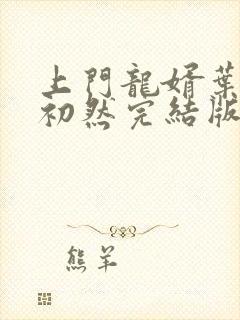 上門龍婿葉
初然完結版
熊羊